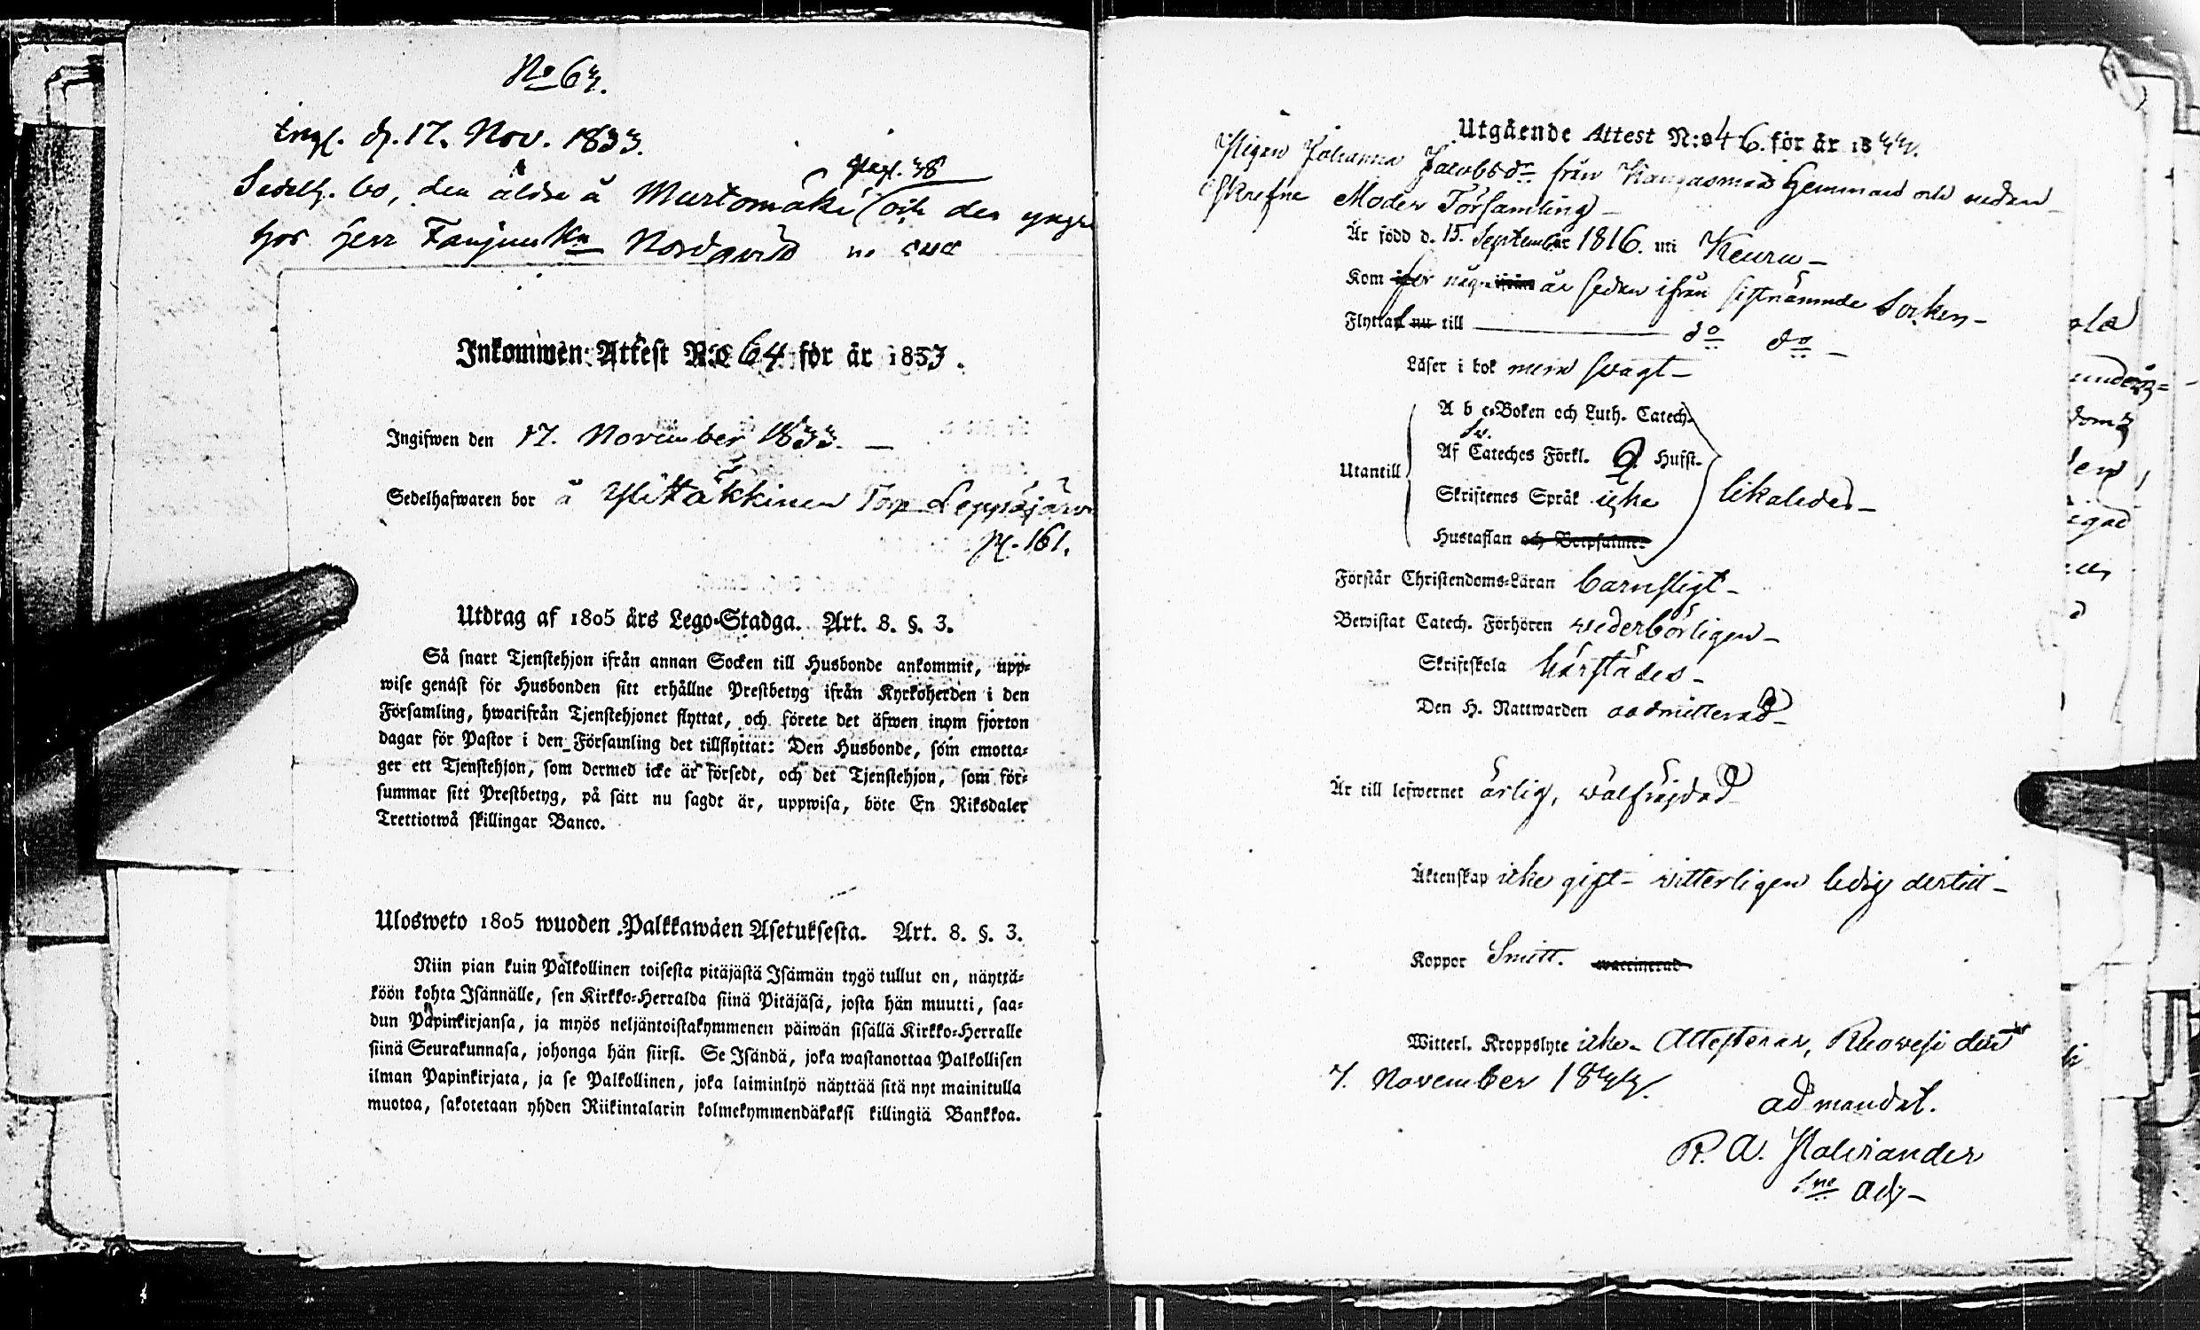 No 64.
Ingf. d. 17. Nov. 1833.
pag. 48
Sedelh. bo, den äldre å Murtomäki (och den yngre
hos Herr Fanjunk. Nordqvist
Inkommen Attest N:o 64 för år 1833.
Ingifwen den 17. November 1833. —
Sedelhafwaren bor å Ylitäkkinen Torp Leppäjärvi
p. 161.
Utdrag af 1805 års Lego-Stadga. Art. 8. §. 3.
Så snart Tjenstehjon ifrån annan Socken till Husbonde ankommit, upp-
wise genast för Husbonden sitt erhållne Prestbetyg ifrån Kyrkoherden i den
Församling, hwarifrån Tjenstehjonet flyttat, och förete det äfwen inom fjorton
dagar för Pastor i den Församling det tillflyttat: Den Husbonde, som emotta-
ger ett Tjenstehjon, som dermed icke är försedt, och det Tjenstehjon, som för-
summar sitt Prestbetyg, på sätt nu sagdt är, uppwisa, böte En Riksdaler
Trettiotwå skillingar Banco.
Ulosweto 1805 wuoden Palkkawäen Asetuksesta. Art. 8. §. 3.
Niin pian kuin Palkollinen toisesta pitäjästä Isännän tygö tullut on, näyttä-
köön kohta Isännälle, sen Kirkko-Herralda siinä Pitäjäsä, josta hän muutti, saa-
dun Papinkirjansa, ja myös neljäntoistakymmenen päiwän sisällä Kirkko-Herralle
siinä Seurakunnasa, johonga hän siirsi. Se Isändä, joka wastanottaa Palkollisen
ilman Papinkirjata, ja se Palkollinen, joka laiminlyö näyttää sitä nyt mainitulla
muotoa, sakotetaan yhden Riikintalarin kolmekymmendäkaksi killingiä Bankkoa.
Utgående Attest N:o 46. för år 1844.
Pigan Johanna Jacobsdr från Kangasmäki Hemman och nedan
skrefne Moder Församling —
Är född d. 15. September 1816. uti Keuru —
Kom för några år sedan ifrån sistnämnde Socken —
Flyttar nu till — do do —
Läser i bok men swagt —
Utantill
A b c-Boken och Luth. Catech.
Sv.
Af Cateches Förkl. Hufst.
Skriftenes Språk icke
Hustaflan och Botpsalmer
likaledes —
Förstår Christendoms-Läran barnsligt —
Bewistat Catech. Förhören wederbörligen —
Skriftskola härstädes —
Den H. Nattwarden admitterad —
Är till lefwernet ärlig, wälfräjdad
Äktenskap icke gift — witterligen ledig dertill —
Koppor Smitt. waccinerad
Witterl. Kroppslyte icke — Attesterar, Ruovesi den
7. November 1844.
ad mandat.
R. A. Palirander
Adj —